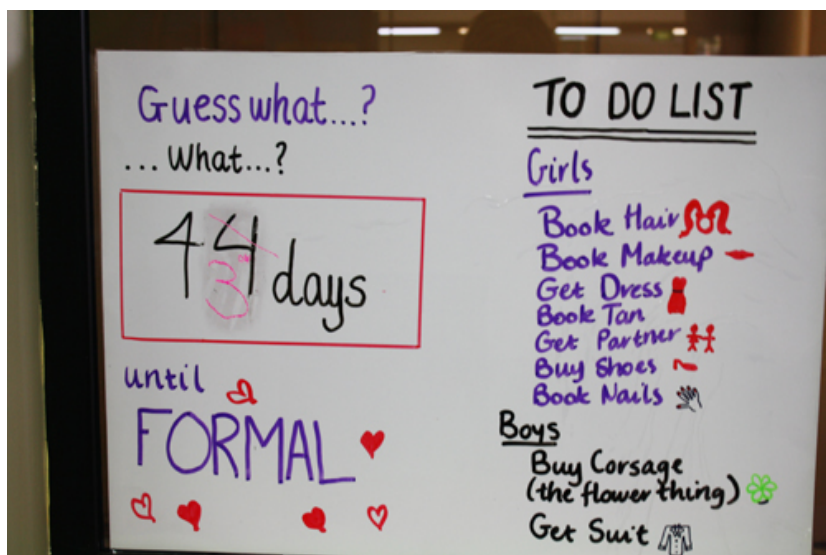 Guess what...?
... What...?
44 days
3
until
FORMAL
TO DO LIST
Girls
Book Hair
Book Makeup
Get Dress
Book Tan
Get Partner
Buy Shoes
Book Nails
Boys
Buy Corsage
(the flower thing)
Get Suit